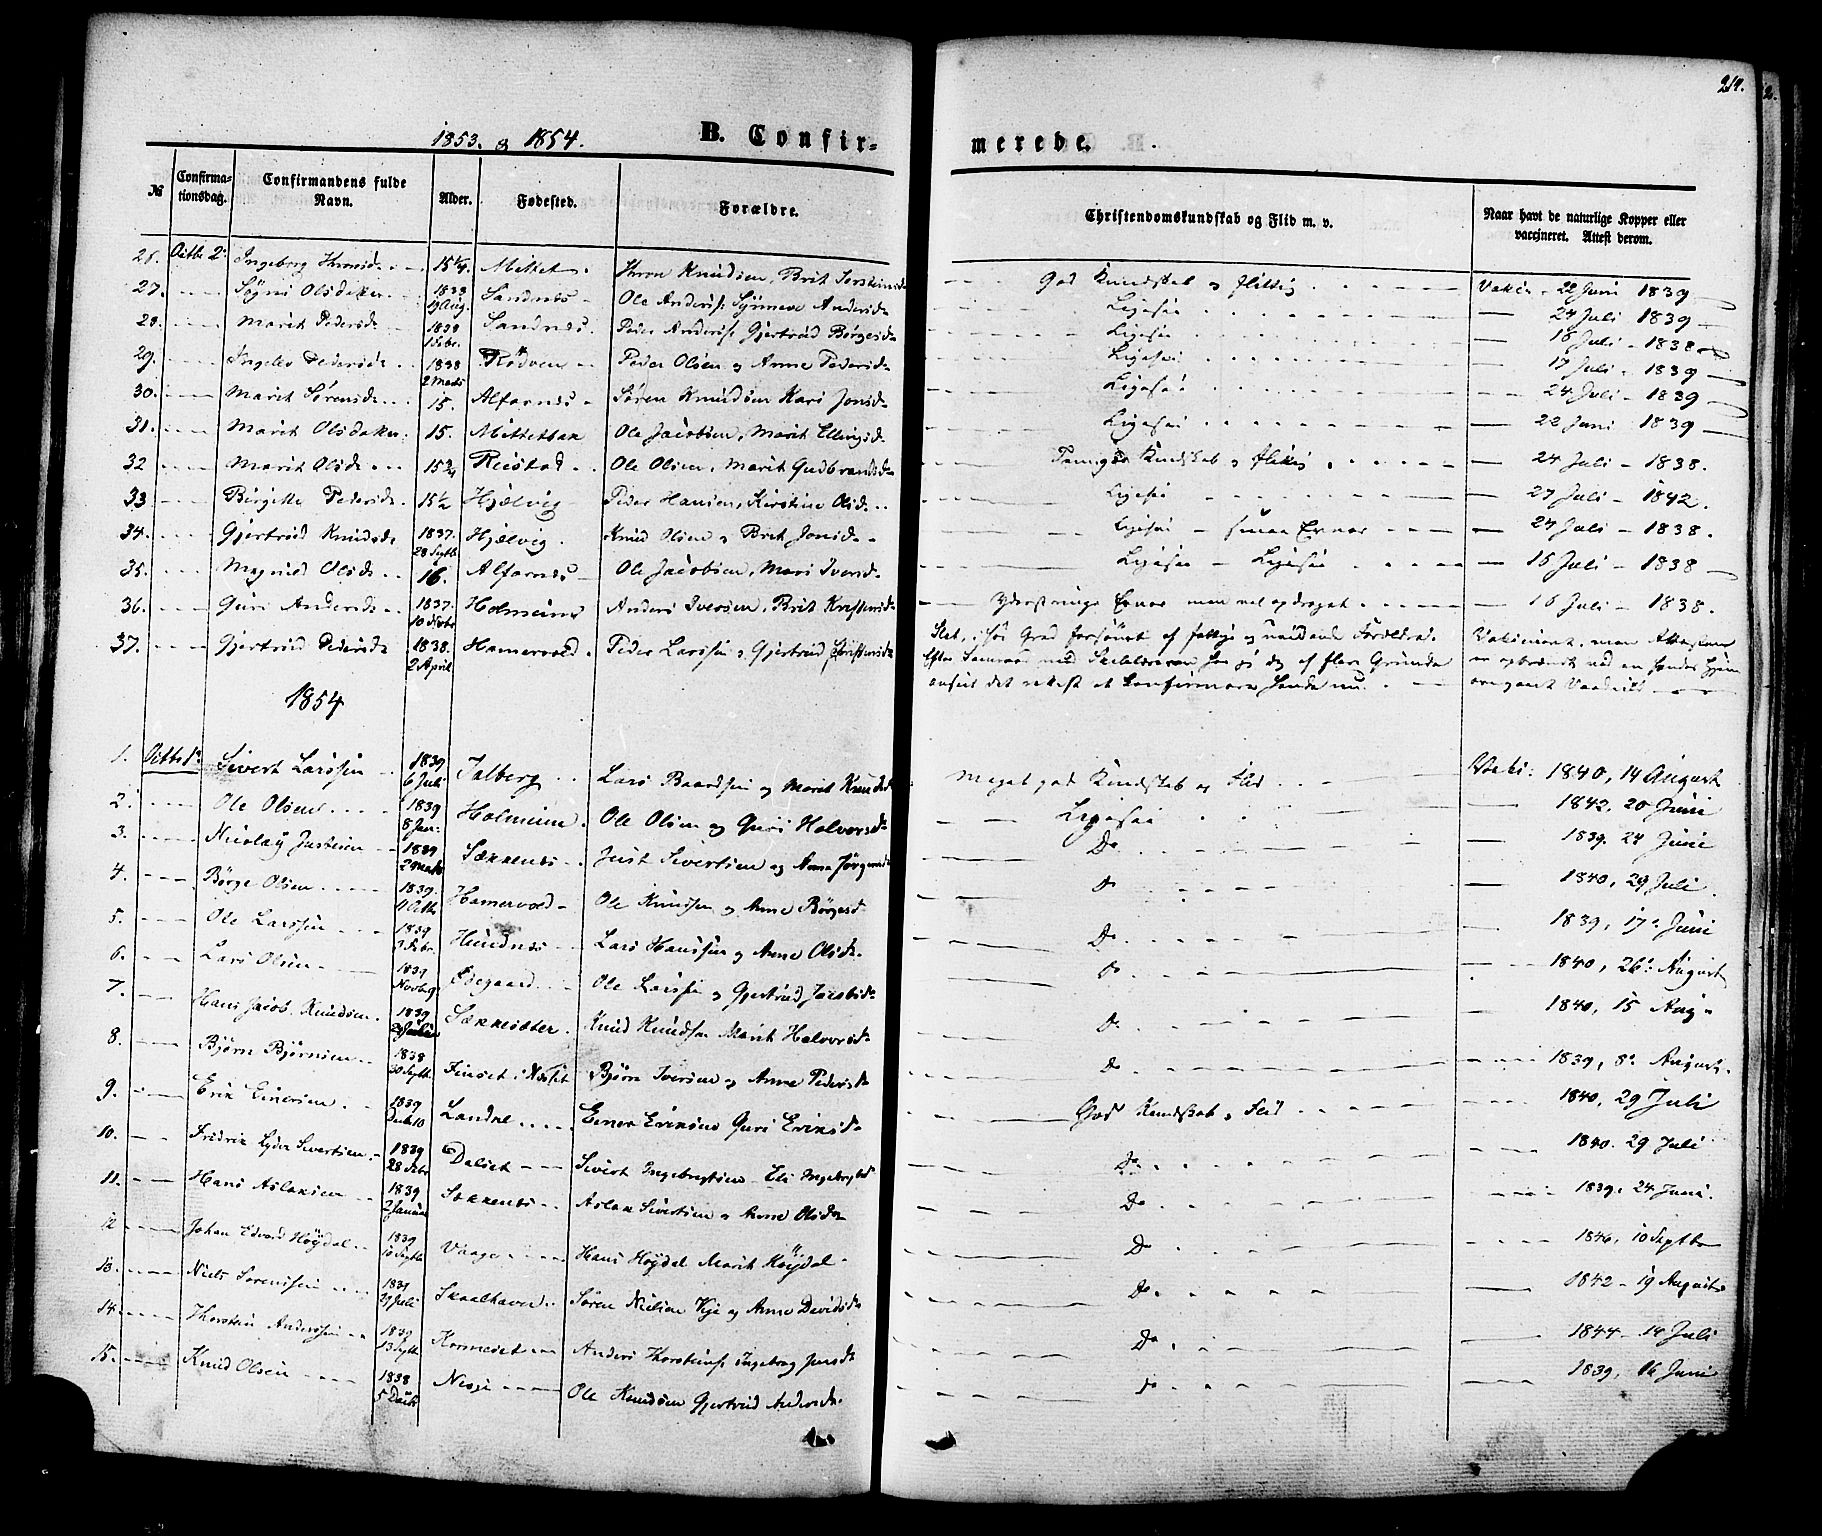 214.
1853. & 1854. B. Confirmerede.
№ Confirmationsdag. Confirmandens fulde Navn. Alder. Fødested. Forældre. Christendomskundskab og Flid m. v. Naar havt de naturlige Kopper eller vaccineret. Attest derom.
26. Ingeborg 15¼. Mittet Thron Knudsen, Brit God Kundskab og flittig 22 Juni 1839
27. Olsdatter 1838 Aug. Sandnes Ole Anders. Synneve Andersd. Ligesaa 24 Juli 1839
28. Marit Pedersd. 1838 1 Febr. Sandnes. Peder Anders. Gjertrud Børgesd. Ligesaa 18 Juli 1838
29. Pedersd. 1838 2 Mads Rødven Peder Olsen og Anne Pedersd. Ligesaa 17 Juli 1839
30. Marit Sørensd. 15. Alfarnes Søren Knudsen Kari Jonsd. Ligesaa 24 Juli 1839
31. Marit Olsdatter 15. Mittetbak Ole Jacobsen, Marit Ellingsd. Ligesaa 22 Juni 1839
32 Marit Olsd. 15¾ Ole Olsen, Marit Gudbrandsd. Kundskab og flittig 24 Juli 1838.
33 Birgitte Pedersd. 15½ Hjelvig Peder Hansen, Kirstine Olsd. Ligesaa 27 Juli 1842.
34. Gjertrud Knudsd. 1837. 28 Septb. Hjelvig. Knud Olsen og Brit Jonsd. Ligesaa smaa Evner 24 Juli 1838.
35. Magnild Olsd. 16. Alfarnes Ole Jacobsen, Mari Iversd. Ligesaa Ligesaa 16 Juli 1838
36. Guri Andersd. 1837. 10 Novbr Holmeim Anders Iversen, Brit Kristensd. Yderst ringe Evner men vel opdraget. 16 Juli 1838.
37. Gjertrud Pedersd. 1838. 2 April Hamervold. Peder Larssen og Gjertrud Christensd. Slet, i høi Grad forsømt af fattige og uvidende Forældre.
Efter Samraad med af flere Grunde
anseet det rettest at konfirmere hende nu.
1854
1. Sivert Larssen 1839 6 Juli Talberg Lars Baardsen og Marit Knudsd. Meget god Kundskab og Flid 1840, 14 August
2. Ole Olsen 1839 8 Jan: Holmeim. Ole Olsen og Guri Halvorsd. Ligesaa 1842, 20 Juni
3. Nicolay Justsen 1839 Sækkenes Just Sivertsen og Anne Jørgensd. Do 1839. 24 Juni
4. Børge Olsen 1839. 11 Hamervold Ole Knudsen og Anne Børgesd. Do 1840, 29 Juli.
5. Ole Larssen 1839 3 Febr. Hundnes Lars Hanssen og Anne Olsd. Do 1839, 17. Juni
6. Lars Olsen 1839 Novb. 9. Ødegaard Ole Larsen og Gjertrud Jacobsd. Do 1840, 26. August
7. Hans Jacob Knudsen. 1839 Sækkesæter. Knud Knudsen Marit Halvorsd. Do 1840, 15 Aug.
8. Bjørn Bjørnsen 1838 30 Septb. Finset i Nesset Bjørn Iversen og Anne Pedersd. Do 1839, 8. August.
9. Erik Einersen 1839 Decb. 10 Landre Einer Eriksen Guri Eriksd. God Kundskab og Flid 1840, 29 Juli
10. Fredrik Lyder Sivertsen 1839 28 Febr. Dalset Sivert Ingebregtsen Eli Ingebrgtsd. Do 1840. 29 Juli
11. Hans Aslaksen 1839 2 Januar Sækkenes Aslak Sivertsen og Anne Olsd. Do 1839, 24 Juni.
12 Johan Edvard Høydal 1839 10 Septb. Vaage Hans Høydal Marit Høydal Do 1840, 10 Septbr
13. Niels Sørenssen 1839 29 Juli Skaalhavn Søren Nielsen og Anne Davidsd. Do 1842 19 August
14. Thorstein Anderssen 1839 13 Septb. Kornesset Anders Thorsteins. Ingeborg Jensd. Do 1844 14 Juli
15. Knud Olsen 1838 5 Decb. Ole Knudsen Gjertrud Andersd. Do 1839, 16 Juni